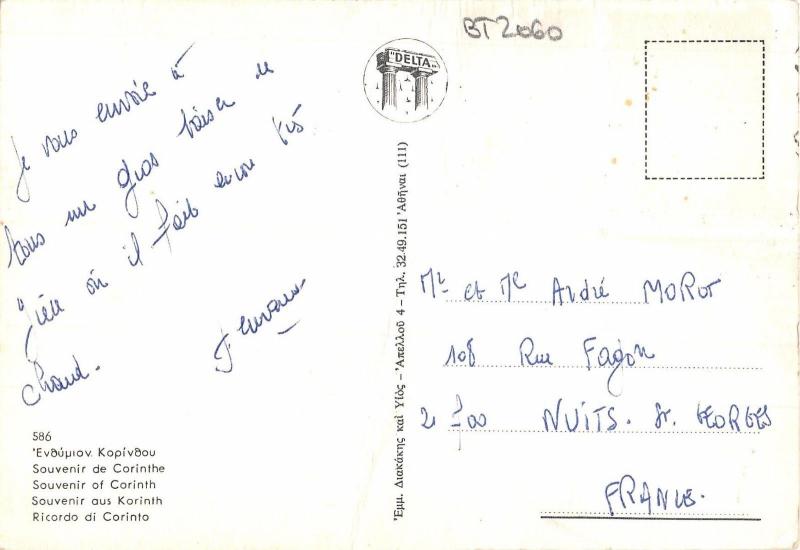 BT2060
"DELTA"
Je vous envoie à
tous un gros baiser de
où il fait encore très
chaud.
586
Ἐνθύμιον Κορίνθου
Souvenir de Corinthe
Souvenir of Corinth
Souvenir aus Korinth
Ricordo di Corinto
Ἐμμ. Διακάκης καὶ Υἱὸς – Ἀπελλοῦ 4 – Τηλ. 32.49.151 Ἀθῆναι (111)
Mr et Me André MOROT
108 Rue Fagon
21700 NUITS. St. GEORGES
FRANCE.